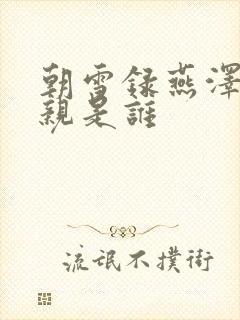 朝雪録燕澤
親是誰
流氓不撲街